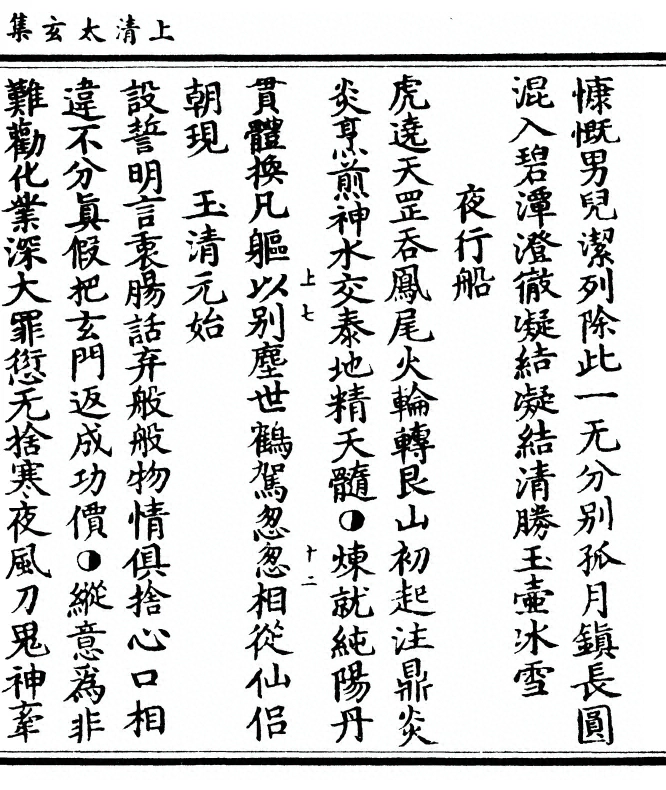 上清太玄集
慷慨男兒潔列除此一无分别孤月鎮長圓
混入碧潭澄徹凝結凝結清勝玉壺冰雪
夜行船
虎遶天罡吞鳳尾火輪轉艮山初起注鼎炎
炎烹煎神水交泰地精天髓◑煉就純陽丹
上七
十二
貫體換凡軀以别塵世鶴駕怱怱相從仙侣
朝現 玉清元始
設誓明言衷腸話弃般般物情俱捨心口相
違不分眞假把玄門返成功價◑縱意爲非
難勸化業深大罪愆无捨寒夜風刀鬼神牽